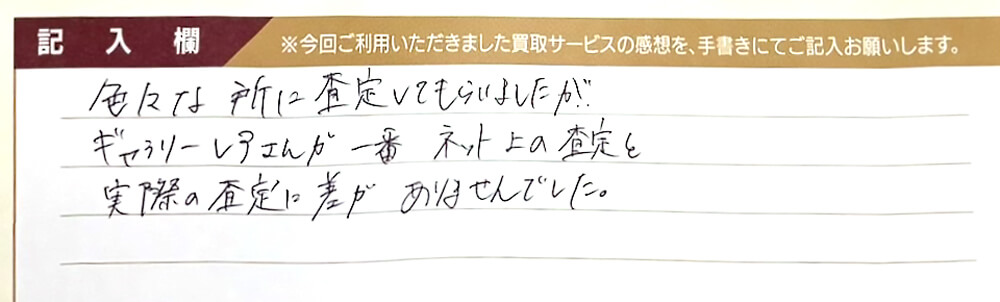 記入欄
※今回ご利用いただきました買取サービスの感想を、手書きにてご記入お願いします。
色々な所に査定してもらいましたが
ギャラリーレアさんが一番ネット上の査定と
実際の査定に差がありませんでした。